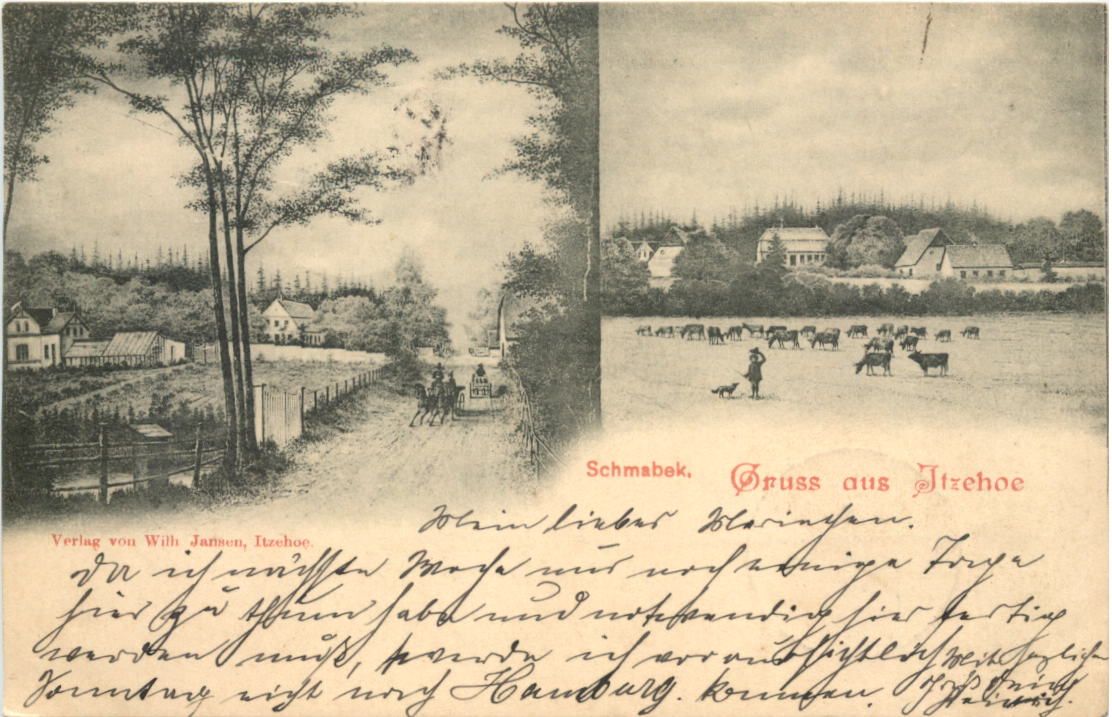 Schmabek.
Gruss aus Itzehoe
Verlag von Wilh Jansen, Itzehoe.
Mein liebes Mariechen.
Da ich nächste Woche nur noch einige Tage
hier zu thun habe und notwendig hier fertig
werden muß, werde ich voraussichtlich
Sonntag nicht nach Hamburg kommen.
Mit herzlichen
Gruß Dein
Heinrich.